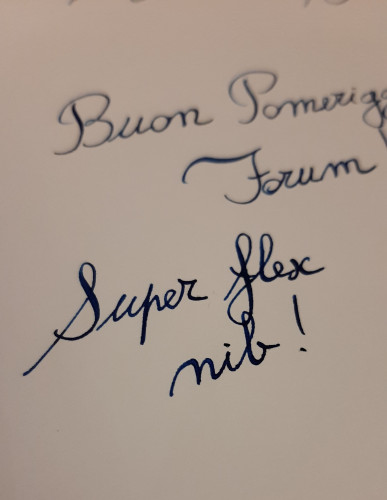 Buon Pomerigg
Forum
Super flex
nib!